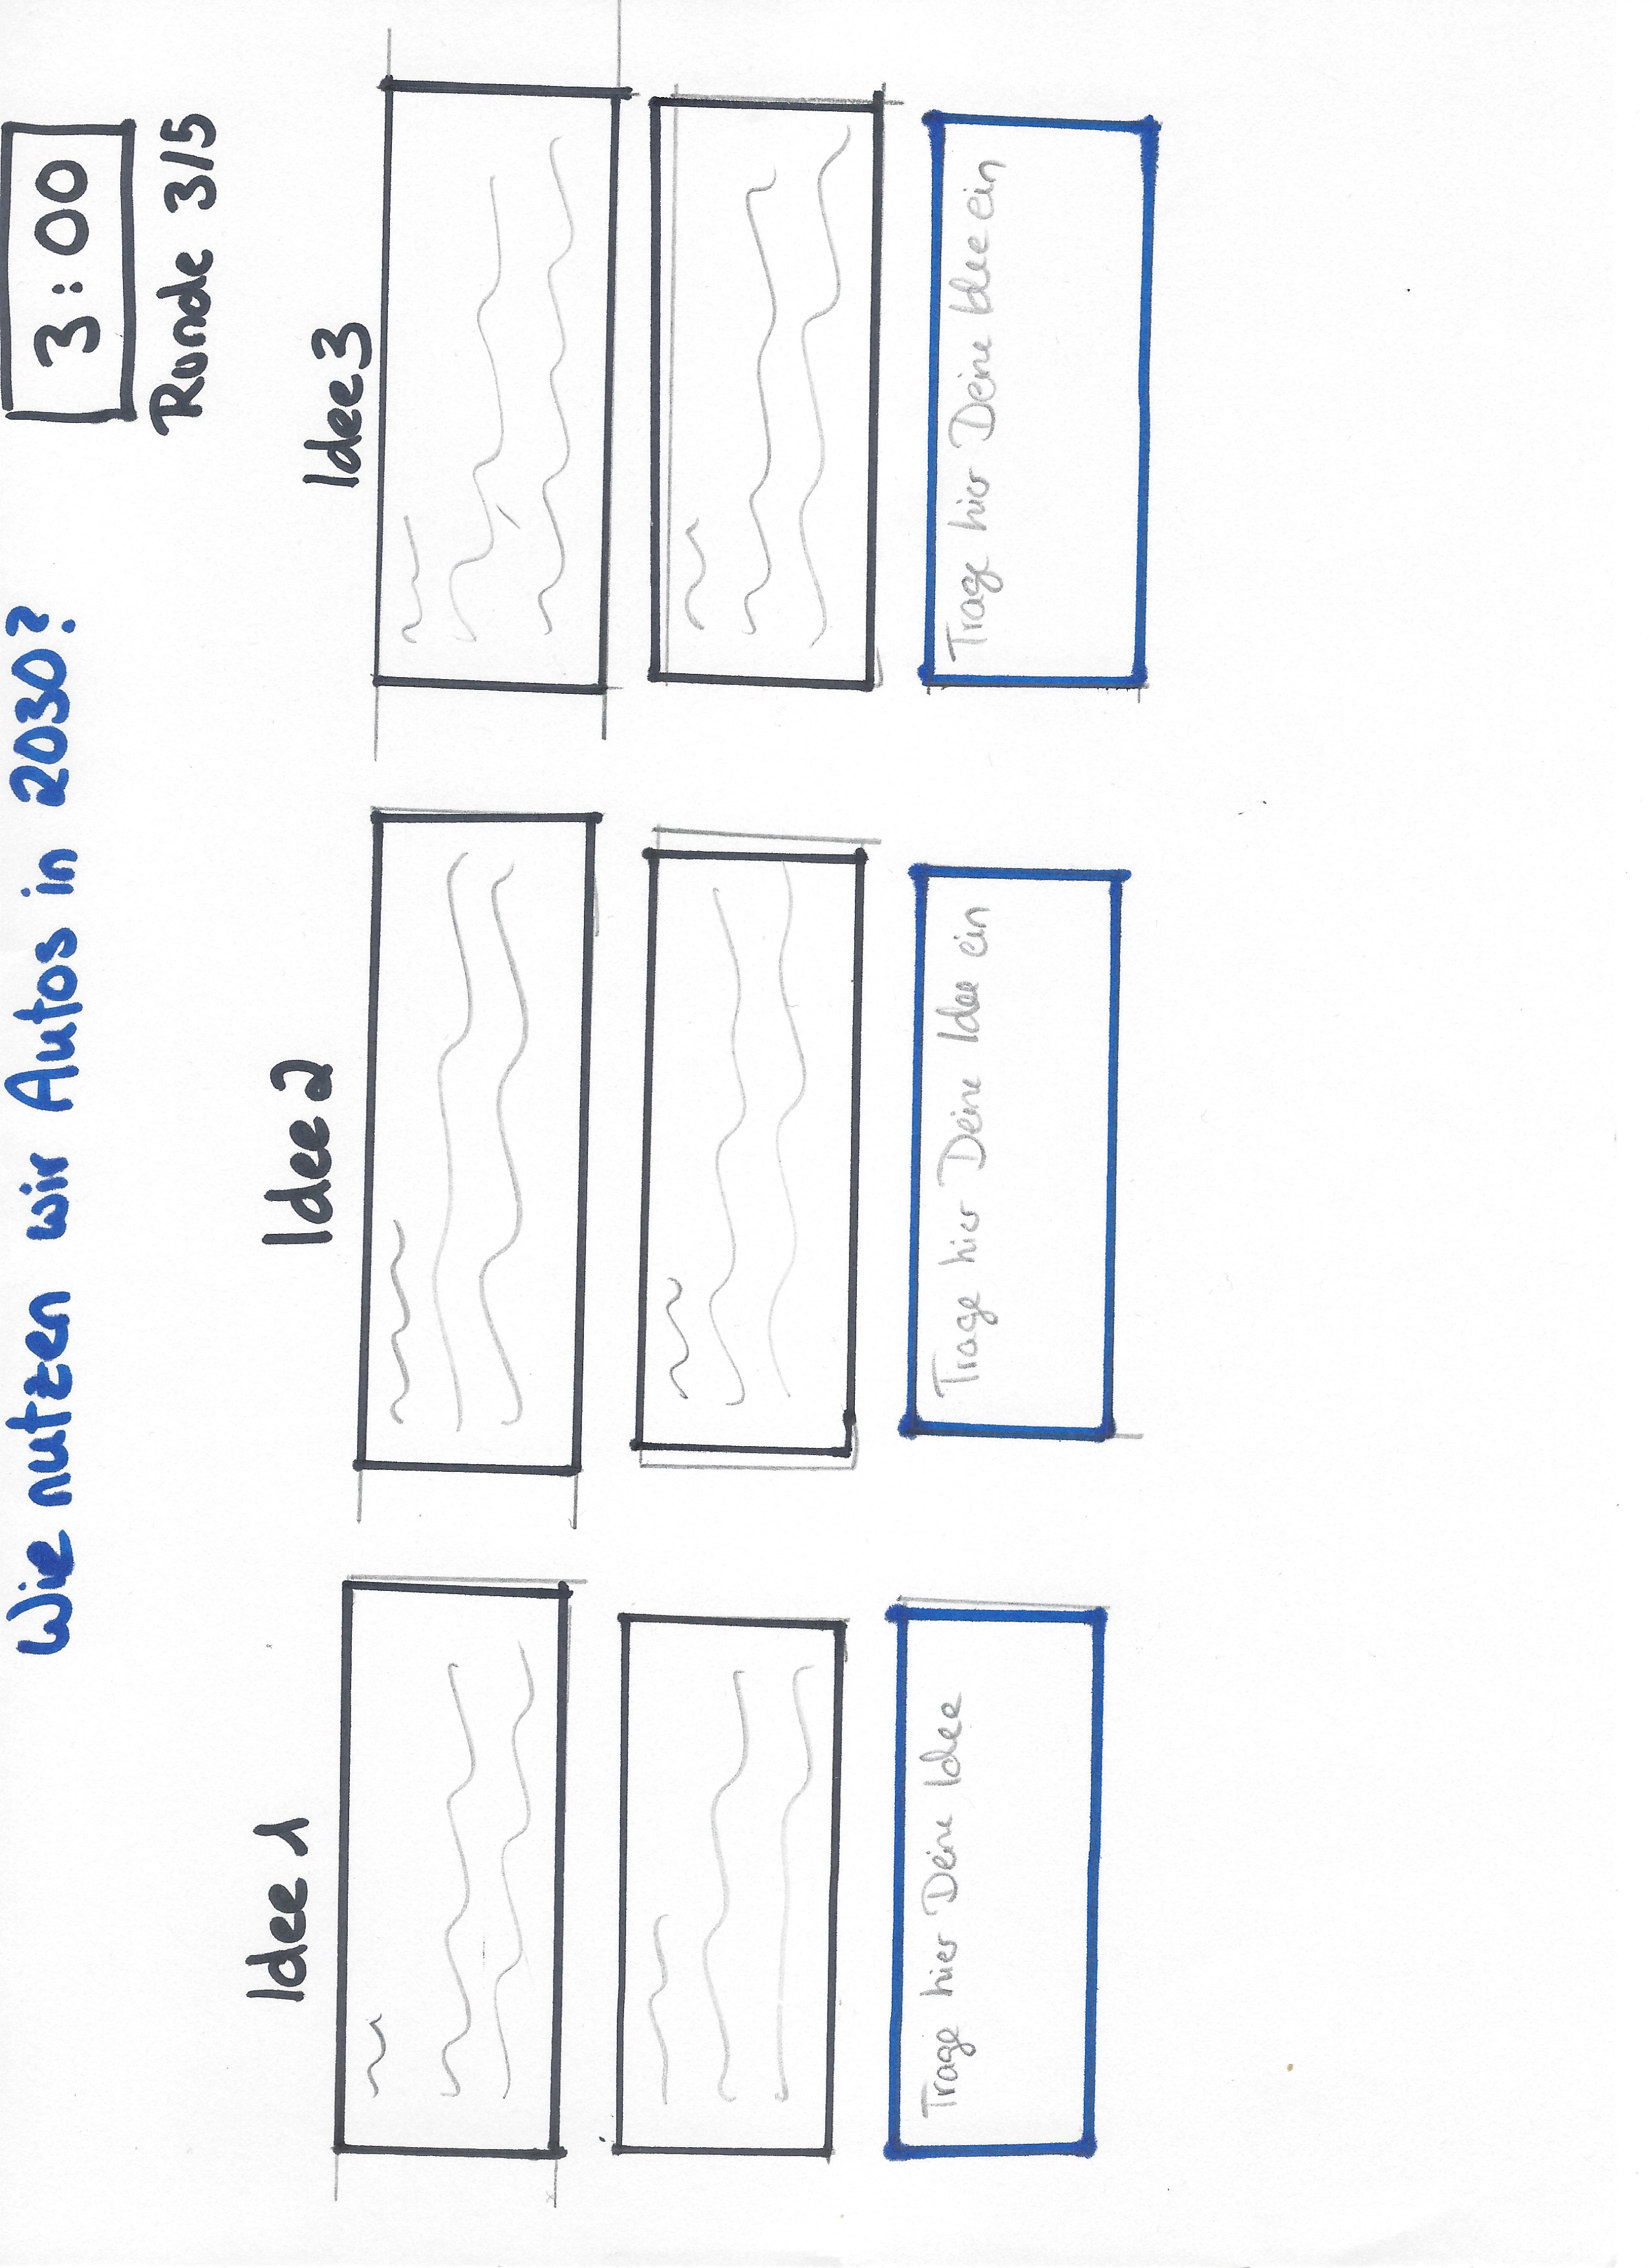 Wie nutzen wir Autos in 2030?
3:00
Runde 3/5
Idee 1
Idee 2
Idee 3
Trage hier Deine Idee
Trage hier Deine Idee ein
Trage hier Deine Idee ein